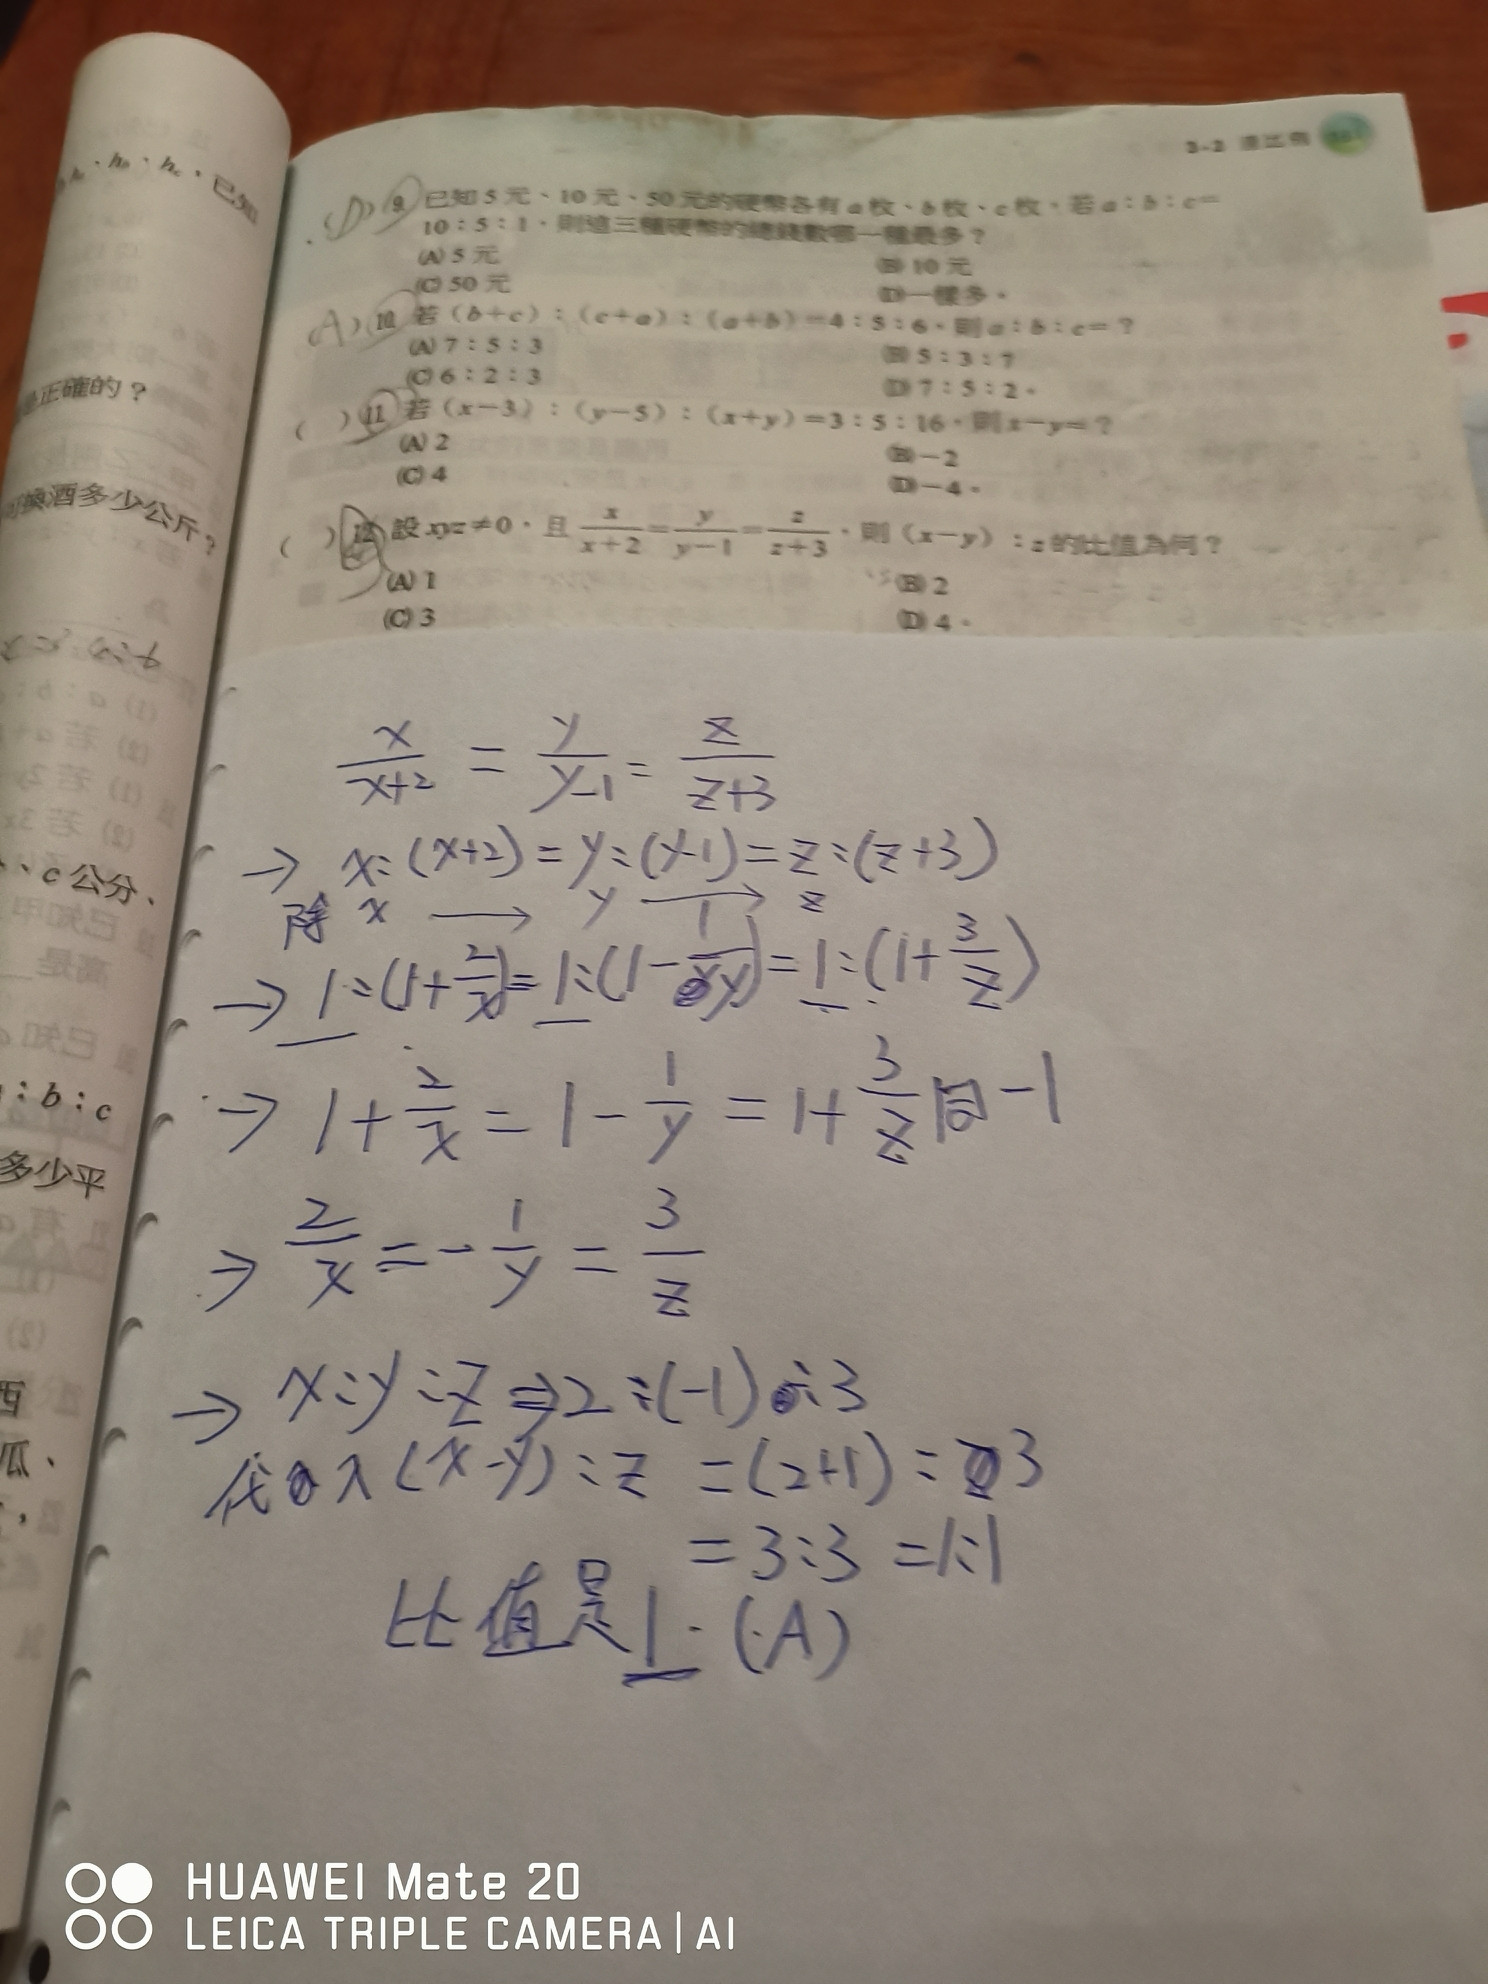 3-2 連比例
(D) 9. 已知5元、10元、50元的硬幣各有a枚、b枚、c枚，若a：b：c＝
10：5：1，則這三種硬幣的總錢數哪一種最多？
(A) 5元
(B) 10元
(C) 50元
(D) 一樣多。
(A) 10. 若(b+c)：(c+a)：(a+b)=4：5：6，則a：b：c=？
(A) 7：5：3
(B) 5：3：7
(C) 6：2：3
(D) 7：5：2。
( ) 11. 若(x-3)：(y-5)：(x+y)=3：5：16，則x-y=？
(A) 2
(B) -2
(C) 4
(D) -4。
( ) 12. 設xyz≠0，且 x/(x+2) = y/(y-1) = z/(z+3)，則(x-y)：z的比值為何？
(A) 1
(B) 2
(C) 3
(D) 4。
x/(x+2) = y/(y-1) = z/(z+3)
→ x:(x+2)=y:(y-1)=z:(z+3)
除 x → y → z
→ 1:(1+2/x)=1:(1-1/y)=1:(1+3/z)
→ 1+2/x=1-1/y=1+3/z 同-1
→ 2/x=-1/y=3/z
→ x:y:z⇒2:(-1):3
代入(x-y):z =(2+1)=3
=3:3 =1:1
比值是1.(A)
、hb、hc，已知
正確的？
換酒多少公斤？
、c公分、
：b：c
多少平
西
瓜、
HUAWEI Mate 20
LEICA TRIPLE CAMERA | AI